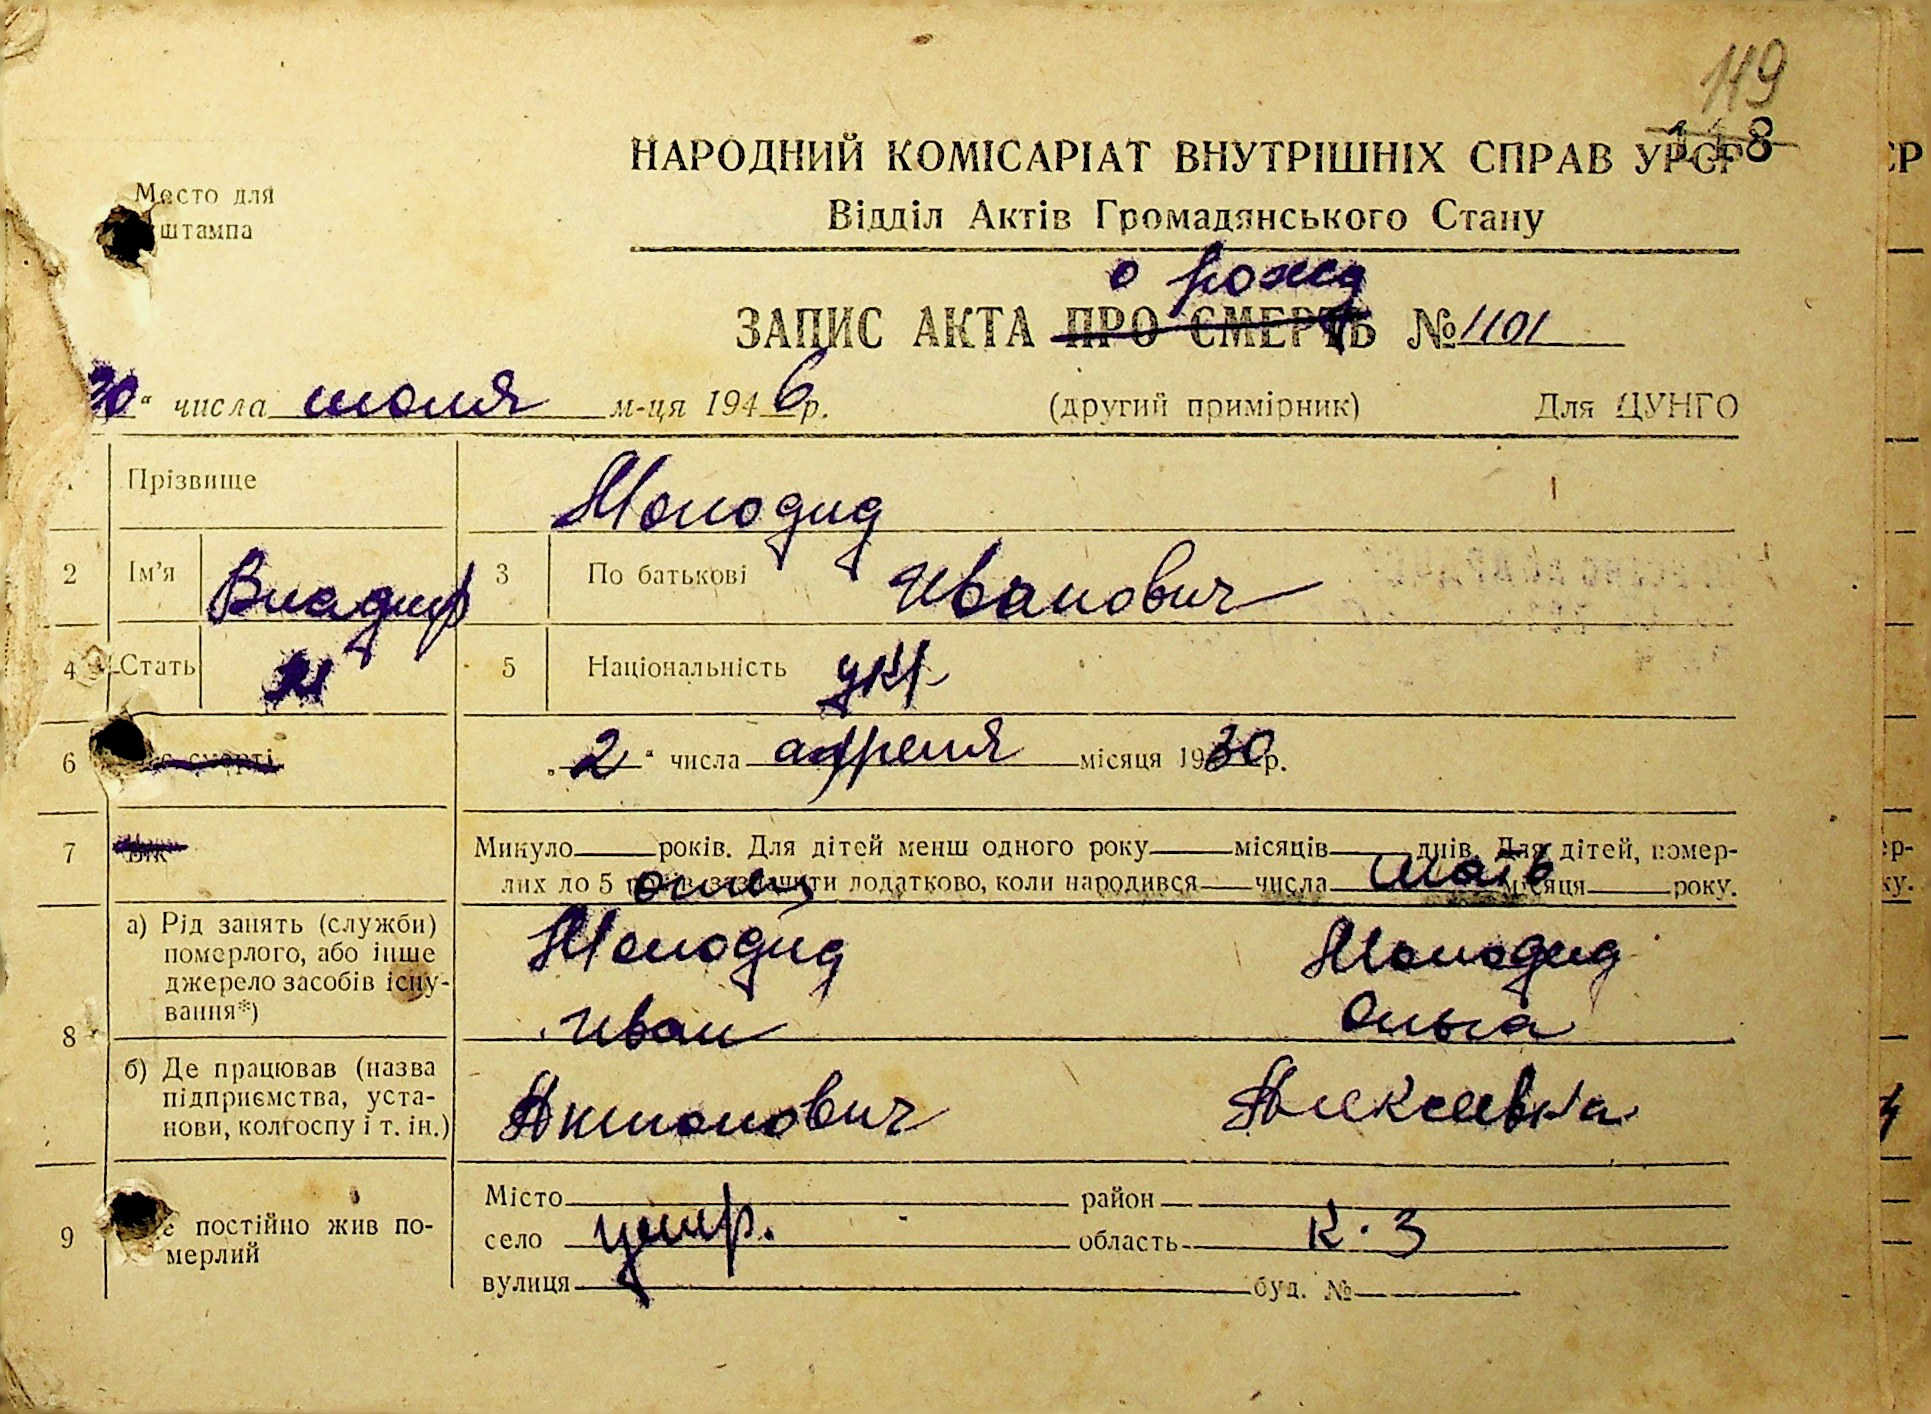 119
118
НАРОДНИЙ КОМІСАРІАТ ВНУТРІШНІХ СПРАВ УРСР
Відділ Актів Громадянського Стану
Место для
штампа
о рожд
ЗАПИС АКТА ПРО СМЕРТЬ № 1101
30 " числа июля м-ця 1946 р. (другий примірник) Для ЦУНГО
Прізвище Молодид
2 Ім'я Владимр 3 По батькові Иванович
4 Стать м 5 Національність укр
6 смерті „ 2 " числа апреля місяця 1930 р.
7 Вік Минуло ____ років. Для дітей менш одного року ____ місяців ____ днів. Для дітей, помер-
лих до 5 років зазначити додатково, коли народився ____ числа ____ місяця ____ року.
отец мать
8 а) Рід занять (служби) померлого, або інше джерело засобів існу-вання*)
Молодид Молодид
Иван Ольга
б) Де працював (назва підприємства, уста-нови, колгоспу і т. ін.)
Антонович Алексеевна
9 постійно жив по-мерлий
Місто ____ район ____
село умер. область К. З
вулиця ____ буд. № ____